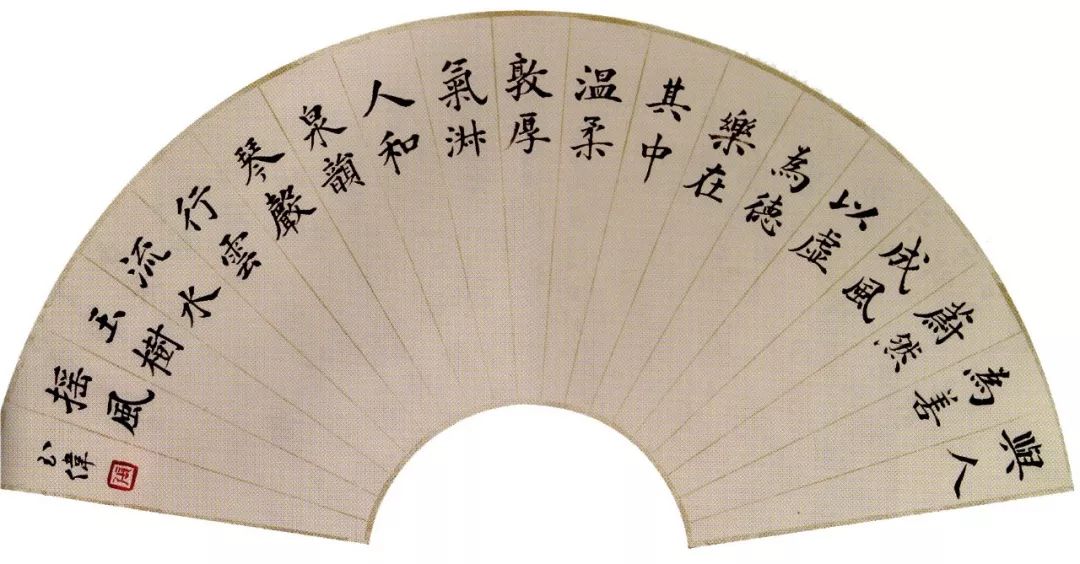 與人
為善
蔚然
成風
以虛
為德
樂在
其中
温柔
敦厚
氣淑
人和
泉韻
琴聲
行雲
流水
玉樹
摇風
偉